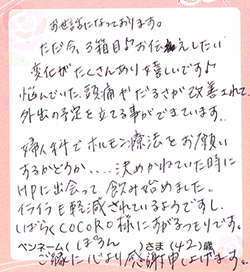 お世話になっております。
ただ今、3箱目♪お伝えしたい
変化がたくさんあり嬉しいです♪
悩んでいた、頭痛やだるさが改善されて、
外出の予定を立てる事ができています。
婦人科でホルモン療法をお願い
するかどうか....決めかねていた時に
HPに出会って、飲み始めました。
イライラも軽減されているようですし、
いばらくCOCORO様にすがるつもりです。
ペンネーム( ぽろん )さま(42)歳
ご縁に心より感謝申し上げます。